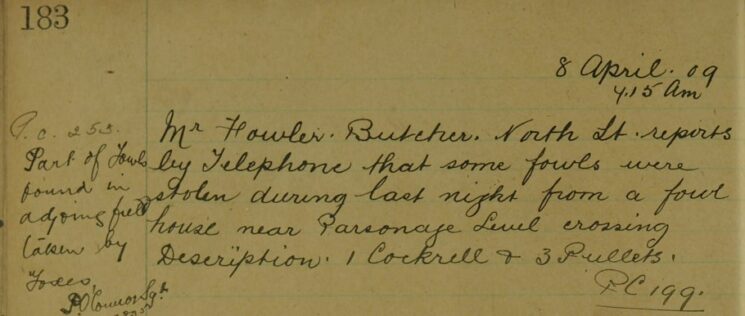 183
8 April. 09
4.15 Am
Mr Fowler. Butcher. North St. reports
by Telephone that some fowls were
stolen during last night from a fowl
house near Parsonage Level crossing
Description. 1 Cockrell & 3 Pullets.
P.C 199.
P.c. 253.
Part of Fowls
found in
adjoing field
taken by
Foxes,
P O'Connor Sgt